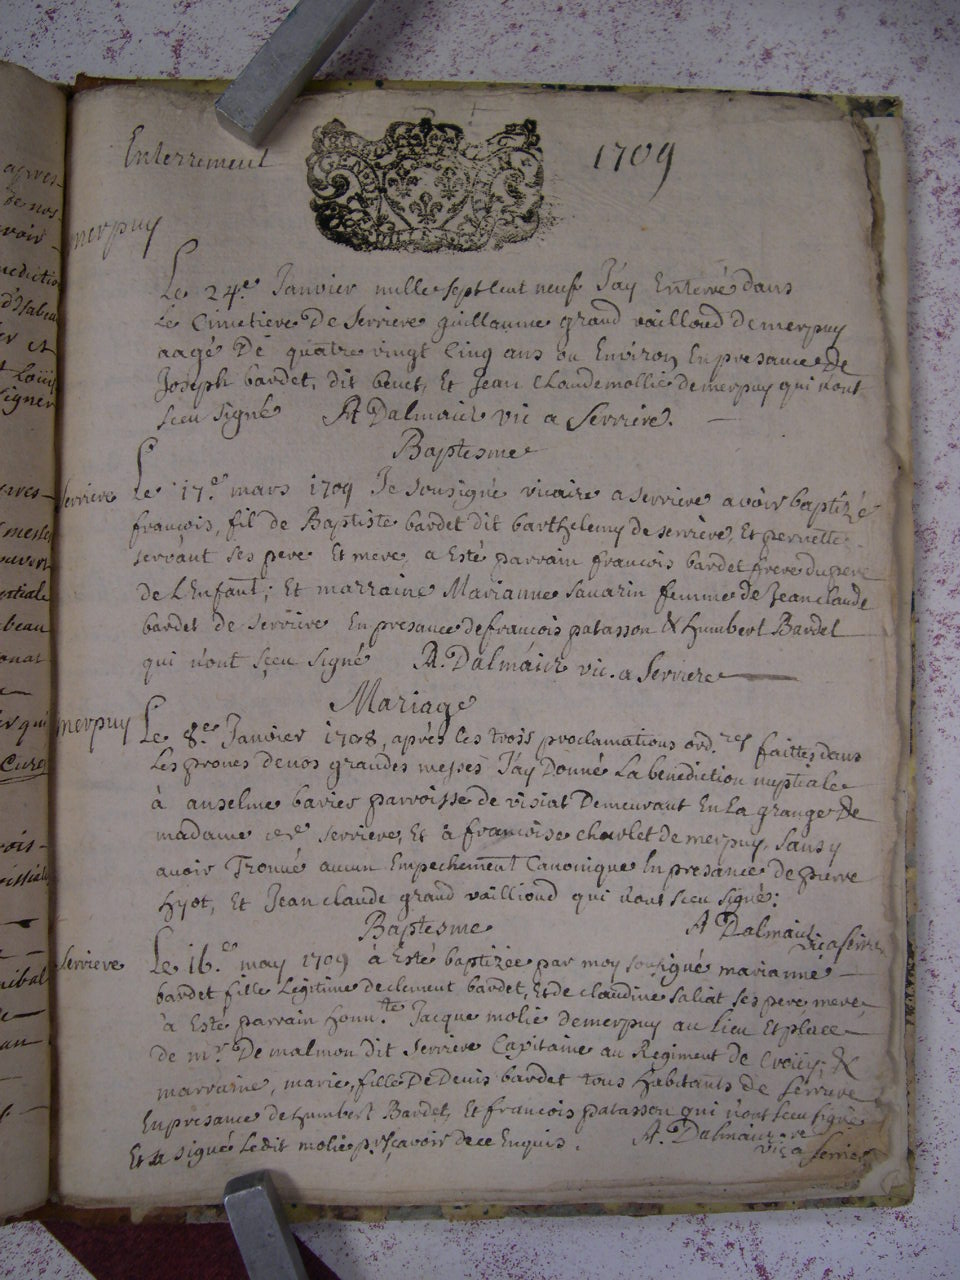 Enterrement 1709
merpuy
Le 24.e Janvier mille sept cent neuf J'ay Enterré dans
Le Cimetiere De Serriere guillaume grand vailloud de merpuy
aagé De quatre vingt Cinq ans ou Environ En presance de
Joseph bardet, dit benet, Et Jean Claude mollie de merpuy qui n'ont
sceu signé A Dalmaiz vic a Serriere.
Baptesme
Serriere Le 17.e mars 1709 Je sousigné vicaire a serriere avoir baptizé
francois, fil de Baptiste bardet dit barthelemy de serriere, Et pernette
servant ses pere Et mere, a Esté parrain francois bardet frere du pere
de L'Enfant; Et marraine Marianne Savarin femme de Jean claude
bardet de Serriere En presance de francois patasson & humbert Bardet
qui n'ont sceu signé A. Dalmaiz vic. a Serriere
Mariage
merpuy Le 8.e Janvier 1708, après les trois proclamations ord.res faittes dans
Les prones de nos grandes messes J'ay Donné La benediction nuptiale
à anselme bavier parroisse de visiat Demeurant En La grange de
madame de Serriere, Et à francoise charlet de merpuy, sans y
avoir Trouvé aucun Empechement Canonique En presance de pierre
hyot, Et Jean claude grand vaillioud qui n'ont sceu signé:
A Dalmaiz
vic a serriere
Baptesme
Serriere Le 16.e may 1709 à Esté baptizée par moy sousigné marianne
bardet fille Legitime de clement bardet, Et de claudine Saliat ses pere mere
à Esté parrain honn.te Jacque molie de merpuy au lieu Et place
de m.r De malmon dit Serriere Capitaine au Regiment de Croity; &
marraine, marie, fille De Denis bardet tous habitants de Serriere
En presance de humbert Bardet, Et francois patasson qui n'ont sceu signé
Et a signé Ledit molie p.r scavoir de ce Enquis. A. Dalmaiz
vic a serriere